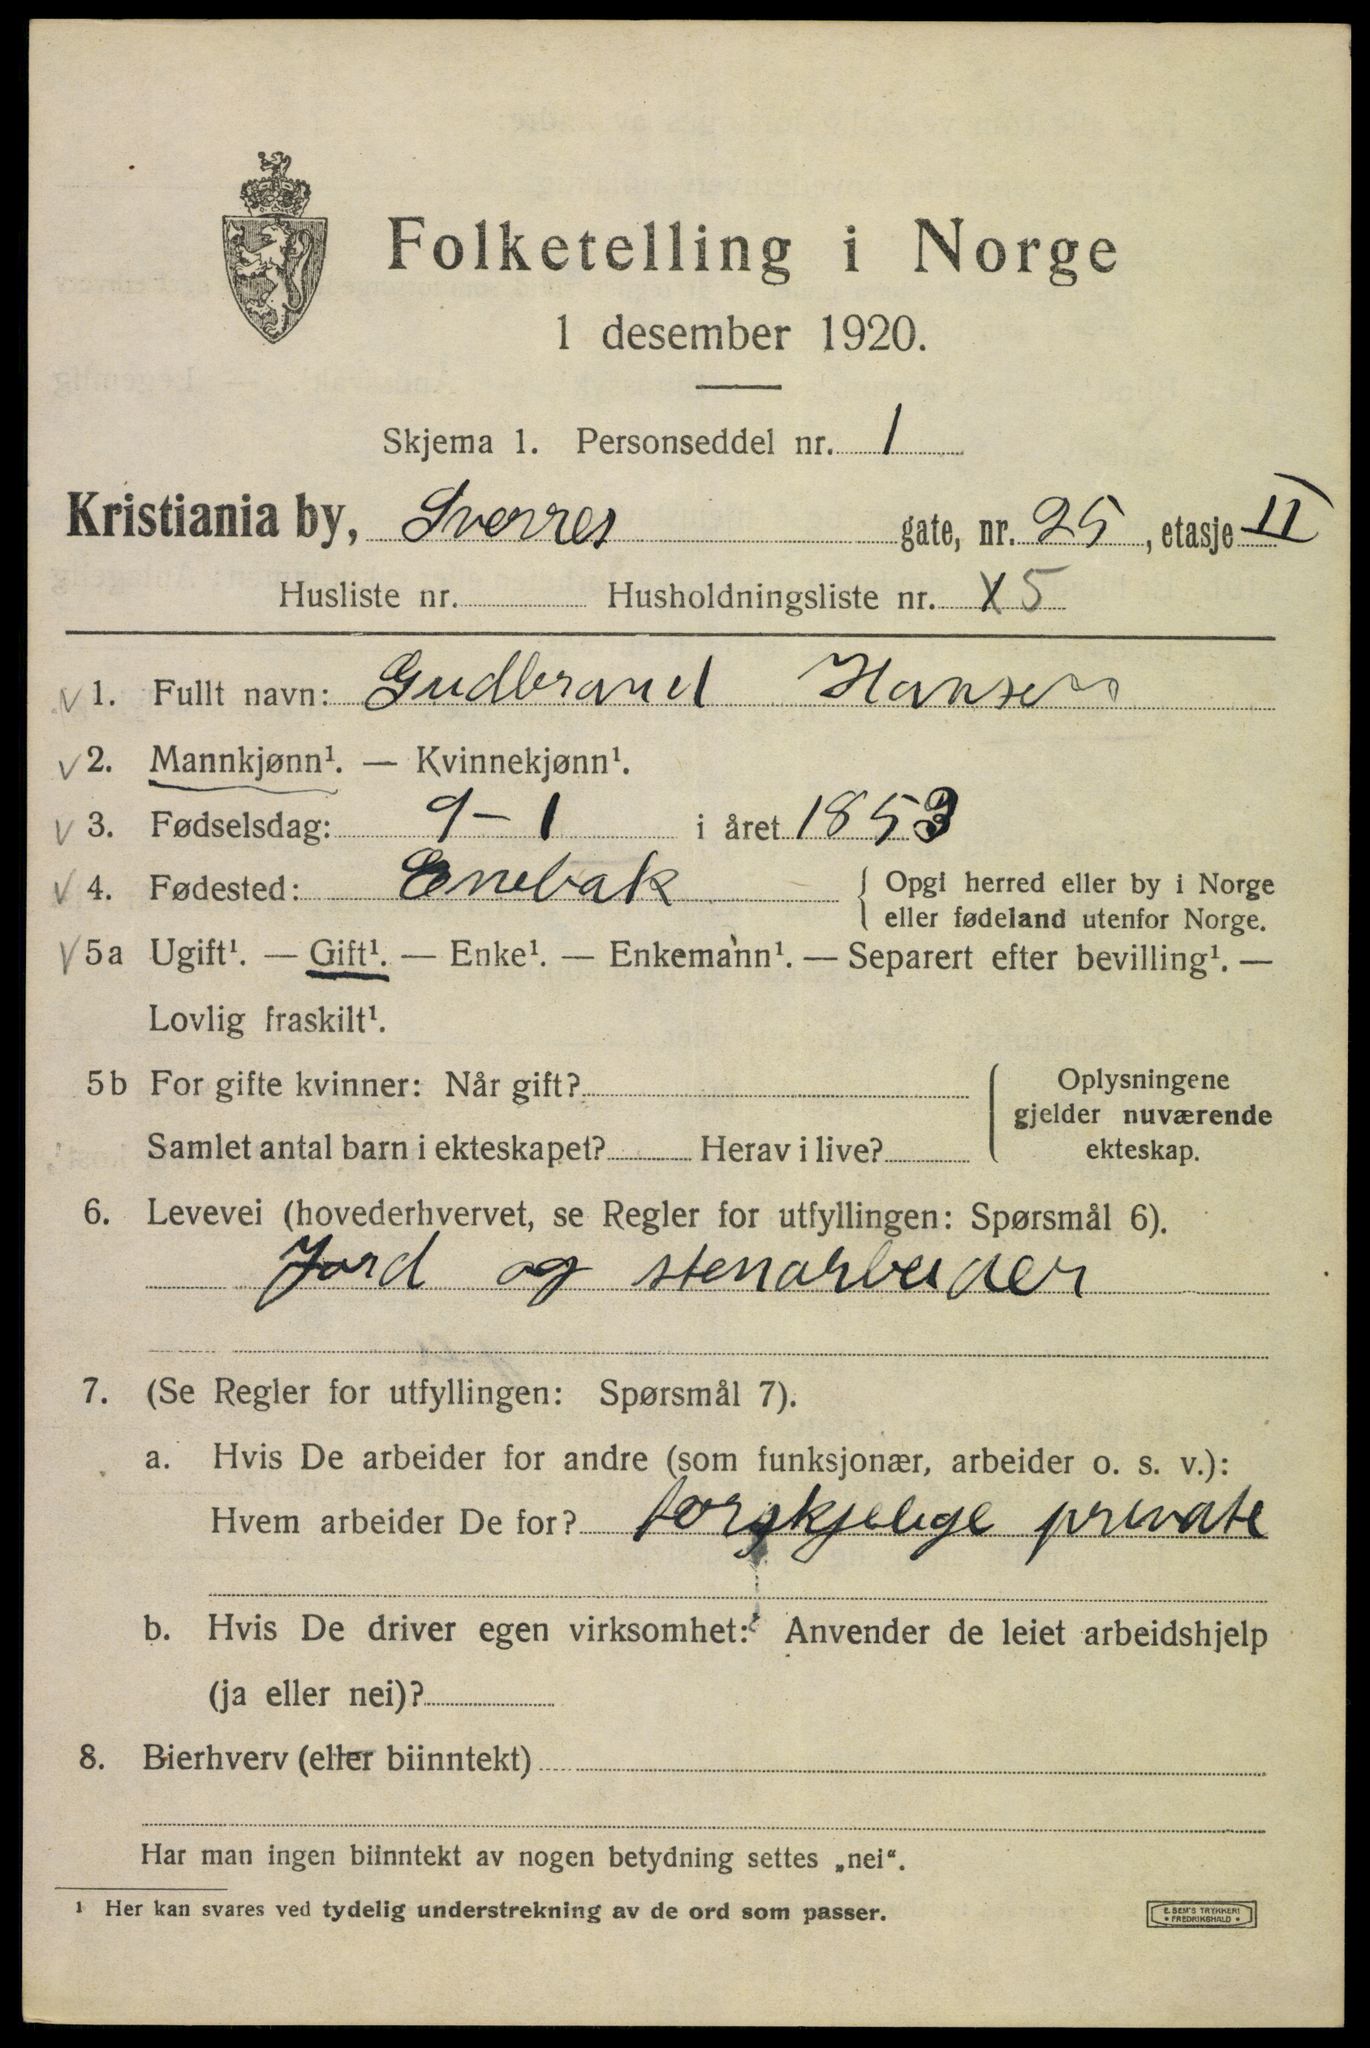 Folketelling i Norge
1 desember 1920.
Skjema 1. Personseddel nr. 1
Kristiania by, Sverres gate, nr. 25, etasje II
Husliste nr. Husholdningsliste nr. X5
√ 1. Fullt navn: Gudbrand Hansen
√ 2. Mannkjønn¹. — Kvinnekjønn¹.
√ 3. Fødselsdag: 9-1 i året 1853
√ 4. Fødested: Enebak { Opgi herred eller by i Norge
eller fødeland utenfor Norge.
√ 5a Ugift¹. — Gift¹. — Enke¹. — Enkemann¹. — Separert efter bevilling¹. —
Lovlig fraskilt¹.
5b For gifte kvinner: Når gift?
Samlet antal barn i ekteskapet? Herav i live?
Oplysningene
gjelder nuværende
ekteskap.
6. Levevei (hovederhvervet, se Regler for utfyllingen: Spørsmål 6).
Jord og stenarbeider
7. (Se Regler for utfyllingen: Spørsmål 7).
a. Hvis De arbeider for andre (som funksjonær, arbeider o. s. v.):
Hvem arbeider De for? forskjelige private
b. Hvis De driver egen virksomhet: Anvender de leiet arbeidshjelp
(ja eller nei)?
8. Bierhverv (eller biinntekt)
Har man ingen biinntekt av nogen betydning settes „nei“.
¹ Her kan svares ved tydelig understrekning av de ord som passer.
E. SEM'S TRYKKERI
• FREDRIKSHALD •